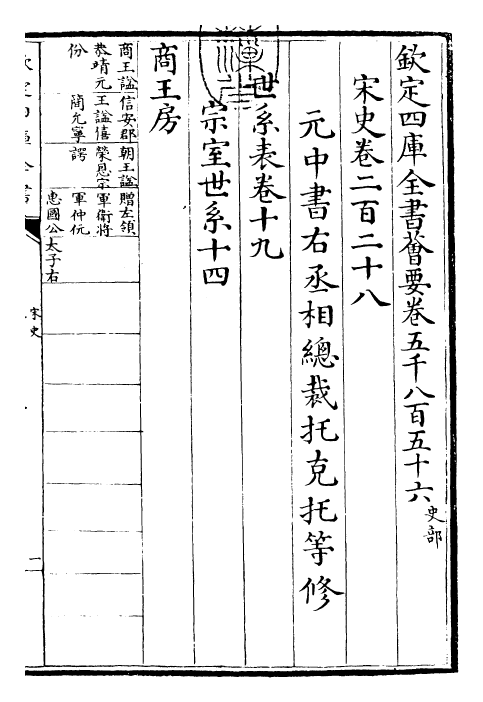 欽定四庫全書薈要卷五千八百五十六 史部
宋史卷二百二十八
元中書右丞相總裁托克托等修
世系表卷十九
宗室世系十四
商王房
商王謚 信安郡 朝王謚 贈左領
恭靖元 王謚僖 榮恩宗 軍衛將
份 簡允寧 諤 軍仲伉
惠國公 太子右
宋史